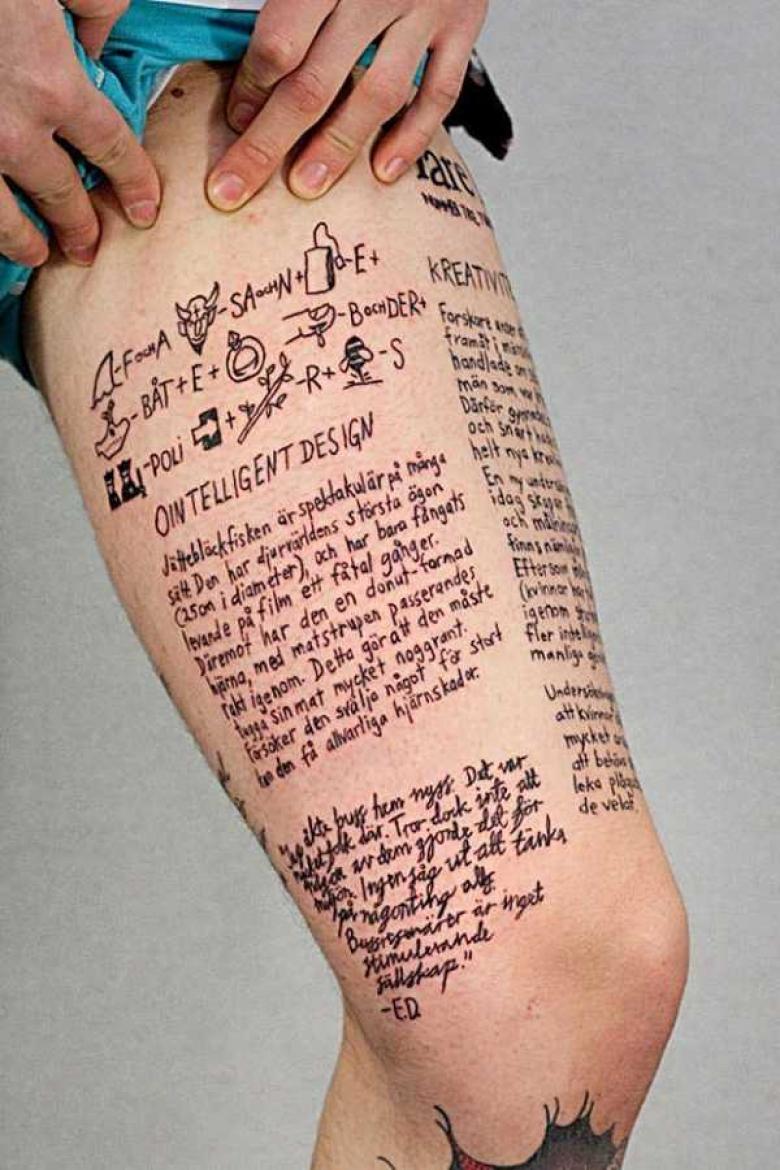 rare
NUMMER TRE,
-FOCHA
-SAOCHN+
-E+
-BÅT+E+
-BOCHDER+
-POLI
+
-R+
-S
OINTELLIGENT DESIGN
Jättebläckfisken är spektakulär på många
sätt. Den har djurvärldens största ögon
(25cm i diameter), och har bara fångats
levande på film ett fåtal gånger.
Däremot har den en donut-formad
hjärna, med matstrupen passerandes
rakt igenom. Detta gör att den måste
tugga sin mat mycket noggrant.
Försöker den svälja något för stort
kan den få allvarliga hjärnskador.
"Jag åkte buss hem nyss. Det var
mycket folk där. Tror dock inte att
någon av dem gjorde det för
miljön. Ingen såg ut att tänka
på någonting alls.
Bussresenärer är inget
stimulerande
sällskap."
-E.D.
KREATIVITE
Forskare anser
framåt i
handlade om
män som var
Därför
och snart
helt nya
En ny
idag
och
finns
Eftersom
(kvinnor har
igenom
fler
manliga
Undersökning
att kvinnor
mycket
att behöva
leka
de vela?.